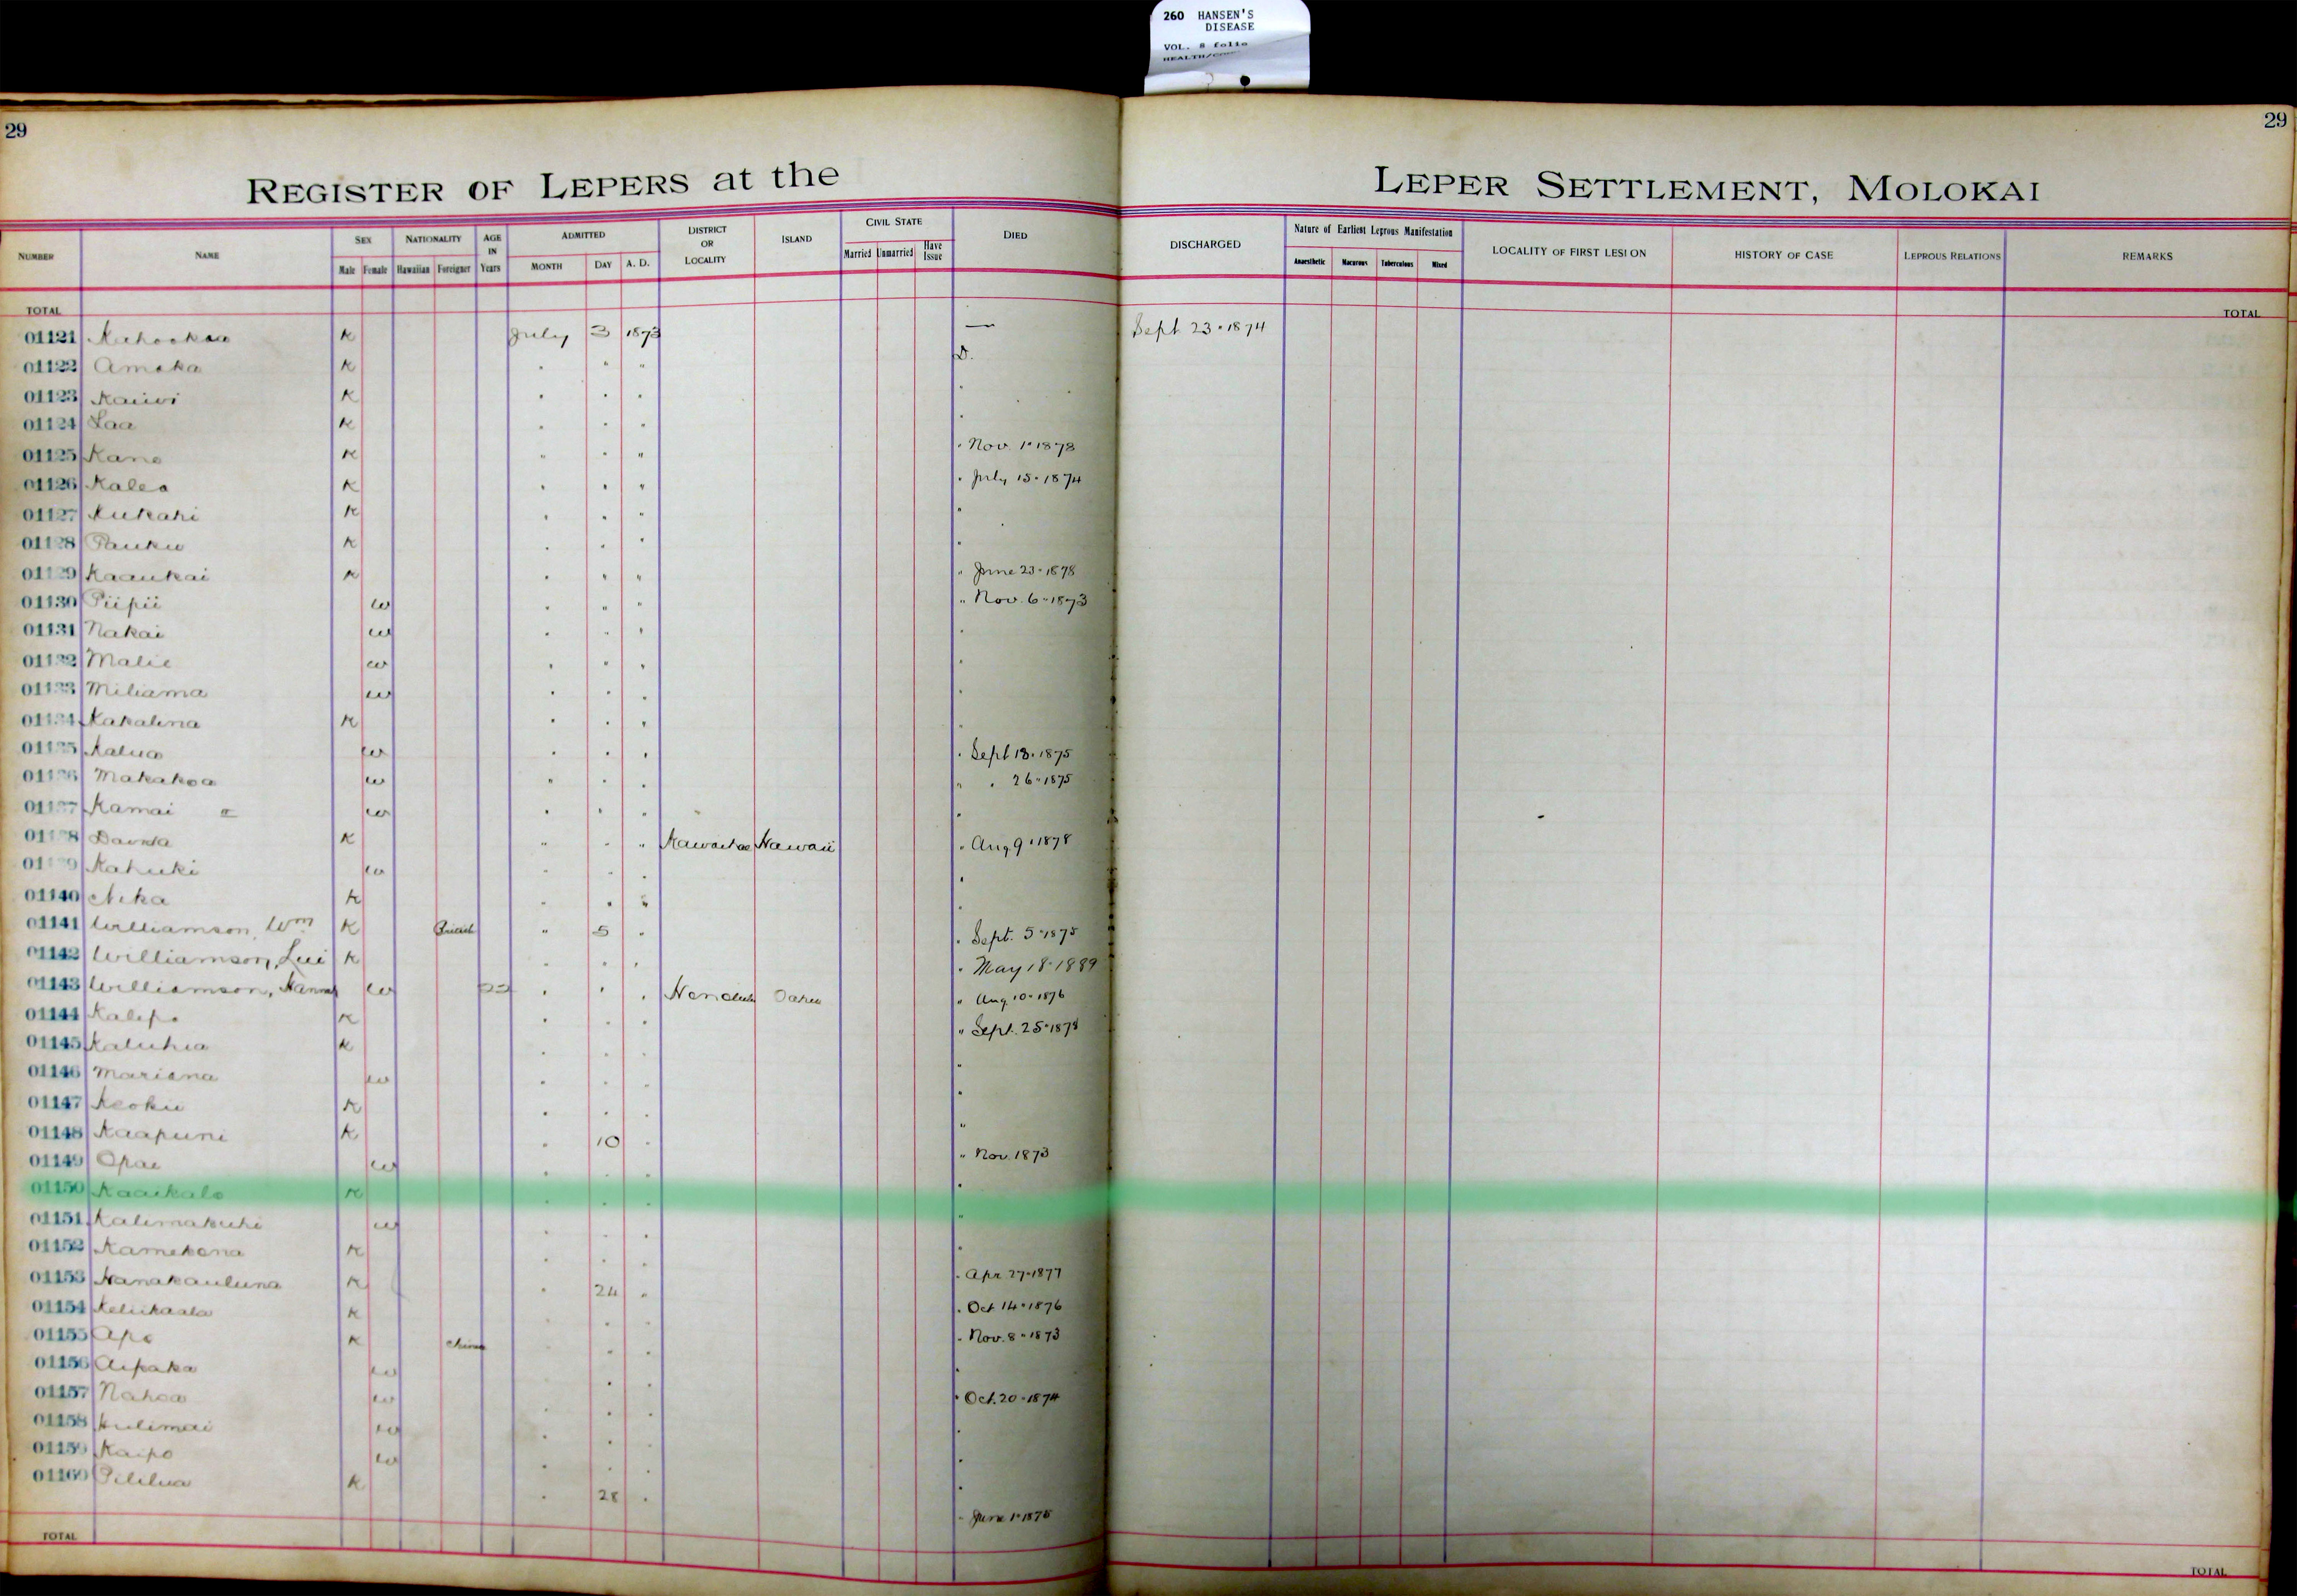 260 HANSEN'S
DISEASE
VOL. 8 folio
29
29
REGISTER OF LEPERS at the LEPER SETTLEMENT, MOLOKAI
NUMBER NAME SEX Male Female NATIONALITY Hawaiian Foreigner AGE IN Years ADMITTED MONTH DAY A. D. DISTRICT OR LOCALITY ISLAND CIVIL STATE Married Unmarried Have Issue DIED DISCHARGED Nature of Earliest Leprous Manifestation Anaesthetic Macurous Tuberculous Mixed LOCALITY OF FIRST LESION HISTORY OF CASE LEPROUS RELATIONS REMARKS
TOTAL TOTAL
01121 K July 3 1873 — Sept 23 · 1874
01122 Amaka K " " " D.
01123 Kaiwi K " " " "
01124 Laa K " " " "
01125 Kane K " " " " Nov. 1 · 1878
01126 Kalea K " " " " July 15 · 1874
01127 Kukahi K " " " "
01128 Pauku K " " " "
01129 Kaaukai K " " " " June 23 · 1878
01130 Piipii W " " " " Nov. 6 · 1873
01131 Nakai W " " " "
01132 Malie W " " " "
01133 Miliama W " " " "
01134 Kakalina K " " " "
01135 Kalua W " " " " Sept 18 · 1875
01136 Makakoa W " " " " " 26 · 1875
01137 Kamai W " " " "
01138 K " " " Kawaihae Hawaii " Aug 9 · 1878
01139 Kahuki W " " " "
01140 Nika K " " " "
01141 Williamson, Wm K British " 5 " " Sept. 5 · 1875
01142 Williamson, Lui K " " " " May 18 · 1889
01143 Williamson, Hannah W " " " Honolulu Oahu " Aug. 10 · 1876
01144 Kalepo K " " " " Sept. 25 · 1878
01145 Kaluhia K " " " "
01146 Mariana W " " " "
01147 Keoku K " " " "
01148 Kaapuni K " 10 " "
01149 Opae W " " " " Nov. 1873
01150 Kaaikalo K " " " "
01151 Kalimakuhi W " " " "
01152 Kamekona K " " " "
01153 Nanakauluna K " 24 " " Apr 27 · 1877
01154 Keliikaala K " " " " Oct 14 · 1876
01155 Apo K China " " " " Nov. 8 · 1873
01156 Aipaka W " " " "
01157 Nahoa W " " " " Oct. 20 · 1874
01158 Hulimai W " " " "
01159 Kaipo W " " " "
01160 Pililua K " 28 " " June 1 · 1875
TOTAL TOTAL